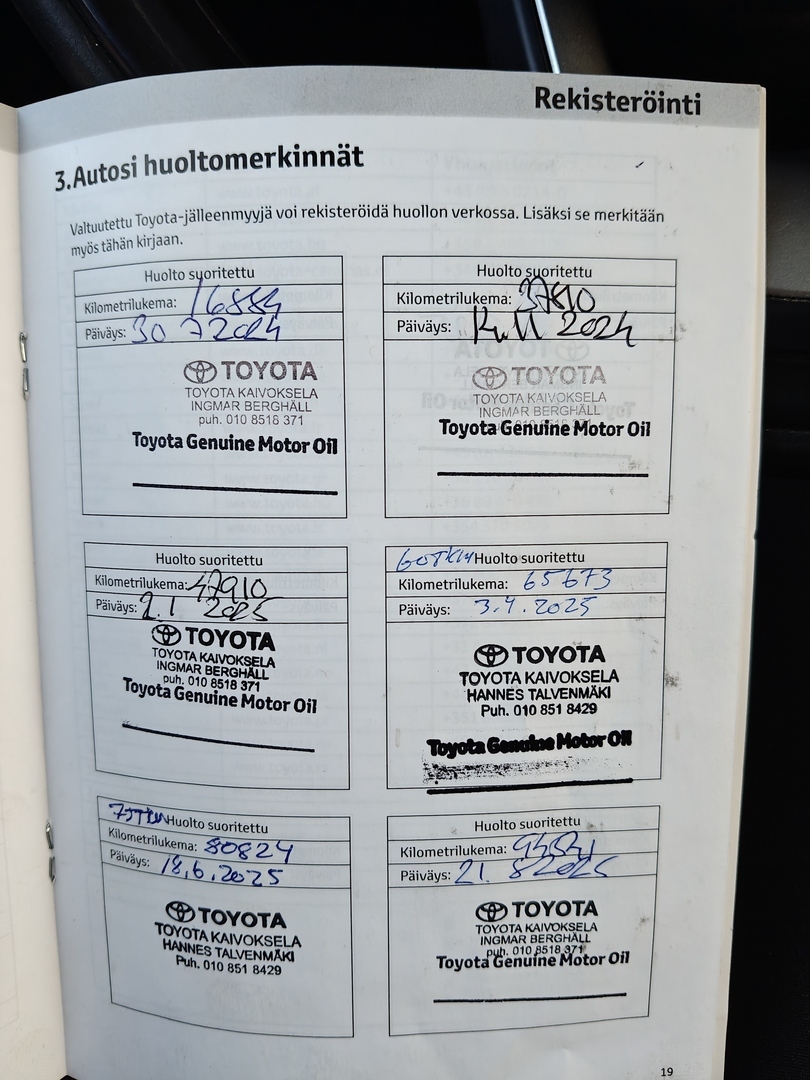 Rekisteröinti
3.Autosi huoltomerkinnät
Valtuutettu Toyota-jälleenmyyjä voi rekisteröidä huollon verkossa. Lisäksi se merkitään
myös tähän kirjaan.
Huolto suoritettu
Kilometrilukema: 16884
Päiväys: 30 7 2024
TOYOTA
TOYOTA KAIVOKSELA
INGMAR BERGHÄLL
puh. 010 8518 371
Toyota Genuine Motor Oil
Huolto suoritettu
Kilometrilukema: 37810
Päiväys: 2024
TOYOTA
TOYOTA KAIVOKSELA
INGMAR BERGHÄLL
Toyota Genuine Motor Oil
Huolto suoritettu
Kilometrilukema: 47910
Päiväys: 2.1 2025
TOYOTA
TOYOTA KAIVOKSELA
INGMAR BERGHÄLL
puh. 010 8518 371
Toyota Genuine Motor Oil
60TKM Huolto suoritettu
Kilometrilukema: 65673
Päiväys: 3.4.2025
TOYOTA
TOYOTA KAIVOKSELA
HANNES TALVENMÄKI
Puh. 010 851 8429
Toyota Genuine Motor Oil
75TKM Huolto suoritettu
Kilometrilukema: 80824
Päiväys: 18.6.2025
TOYOTA
TOYOTA KAIVOKSELA
HANNES TALVENMÄKI
Puh. 010 851 8429
Huolto suoritettu
Kilometrilukema:
Päiväys: 21. 8 2025
TOYOTA
TOYOTA KAIVOKSELA
INGMAR BERGHÄLL
puh. 010 8518 371
Toyota Genuine Motor Oil
19